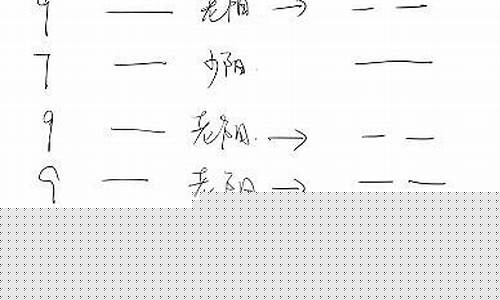 9 — 老阳 → — —
7 — 少阳 —
9 — 老阳 → — —
9 — 老阳 → — —